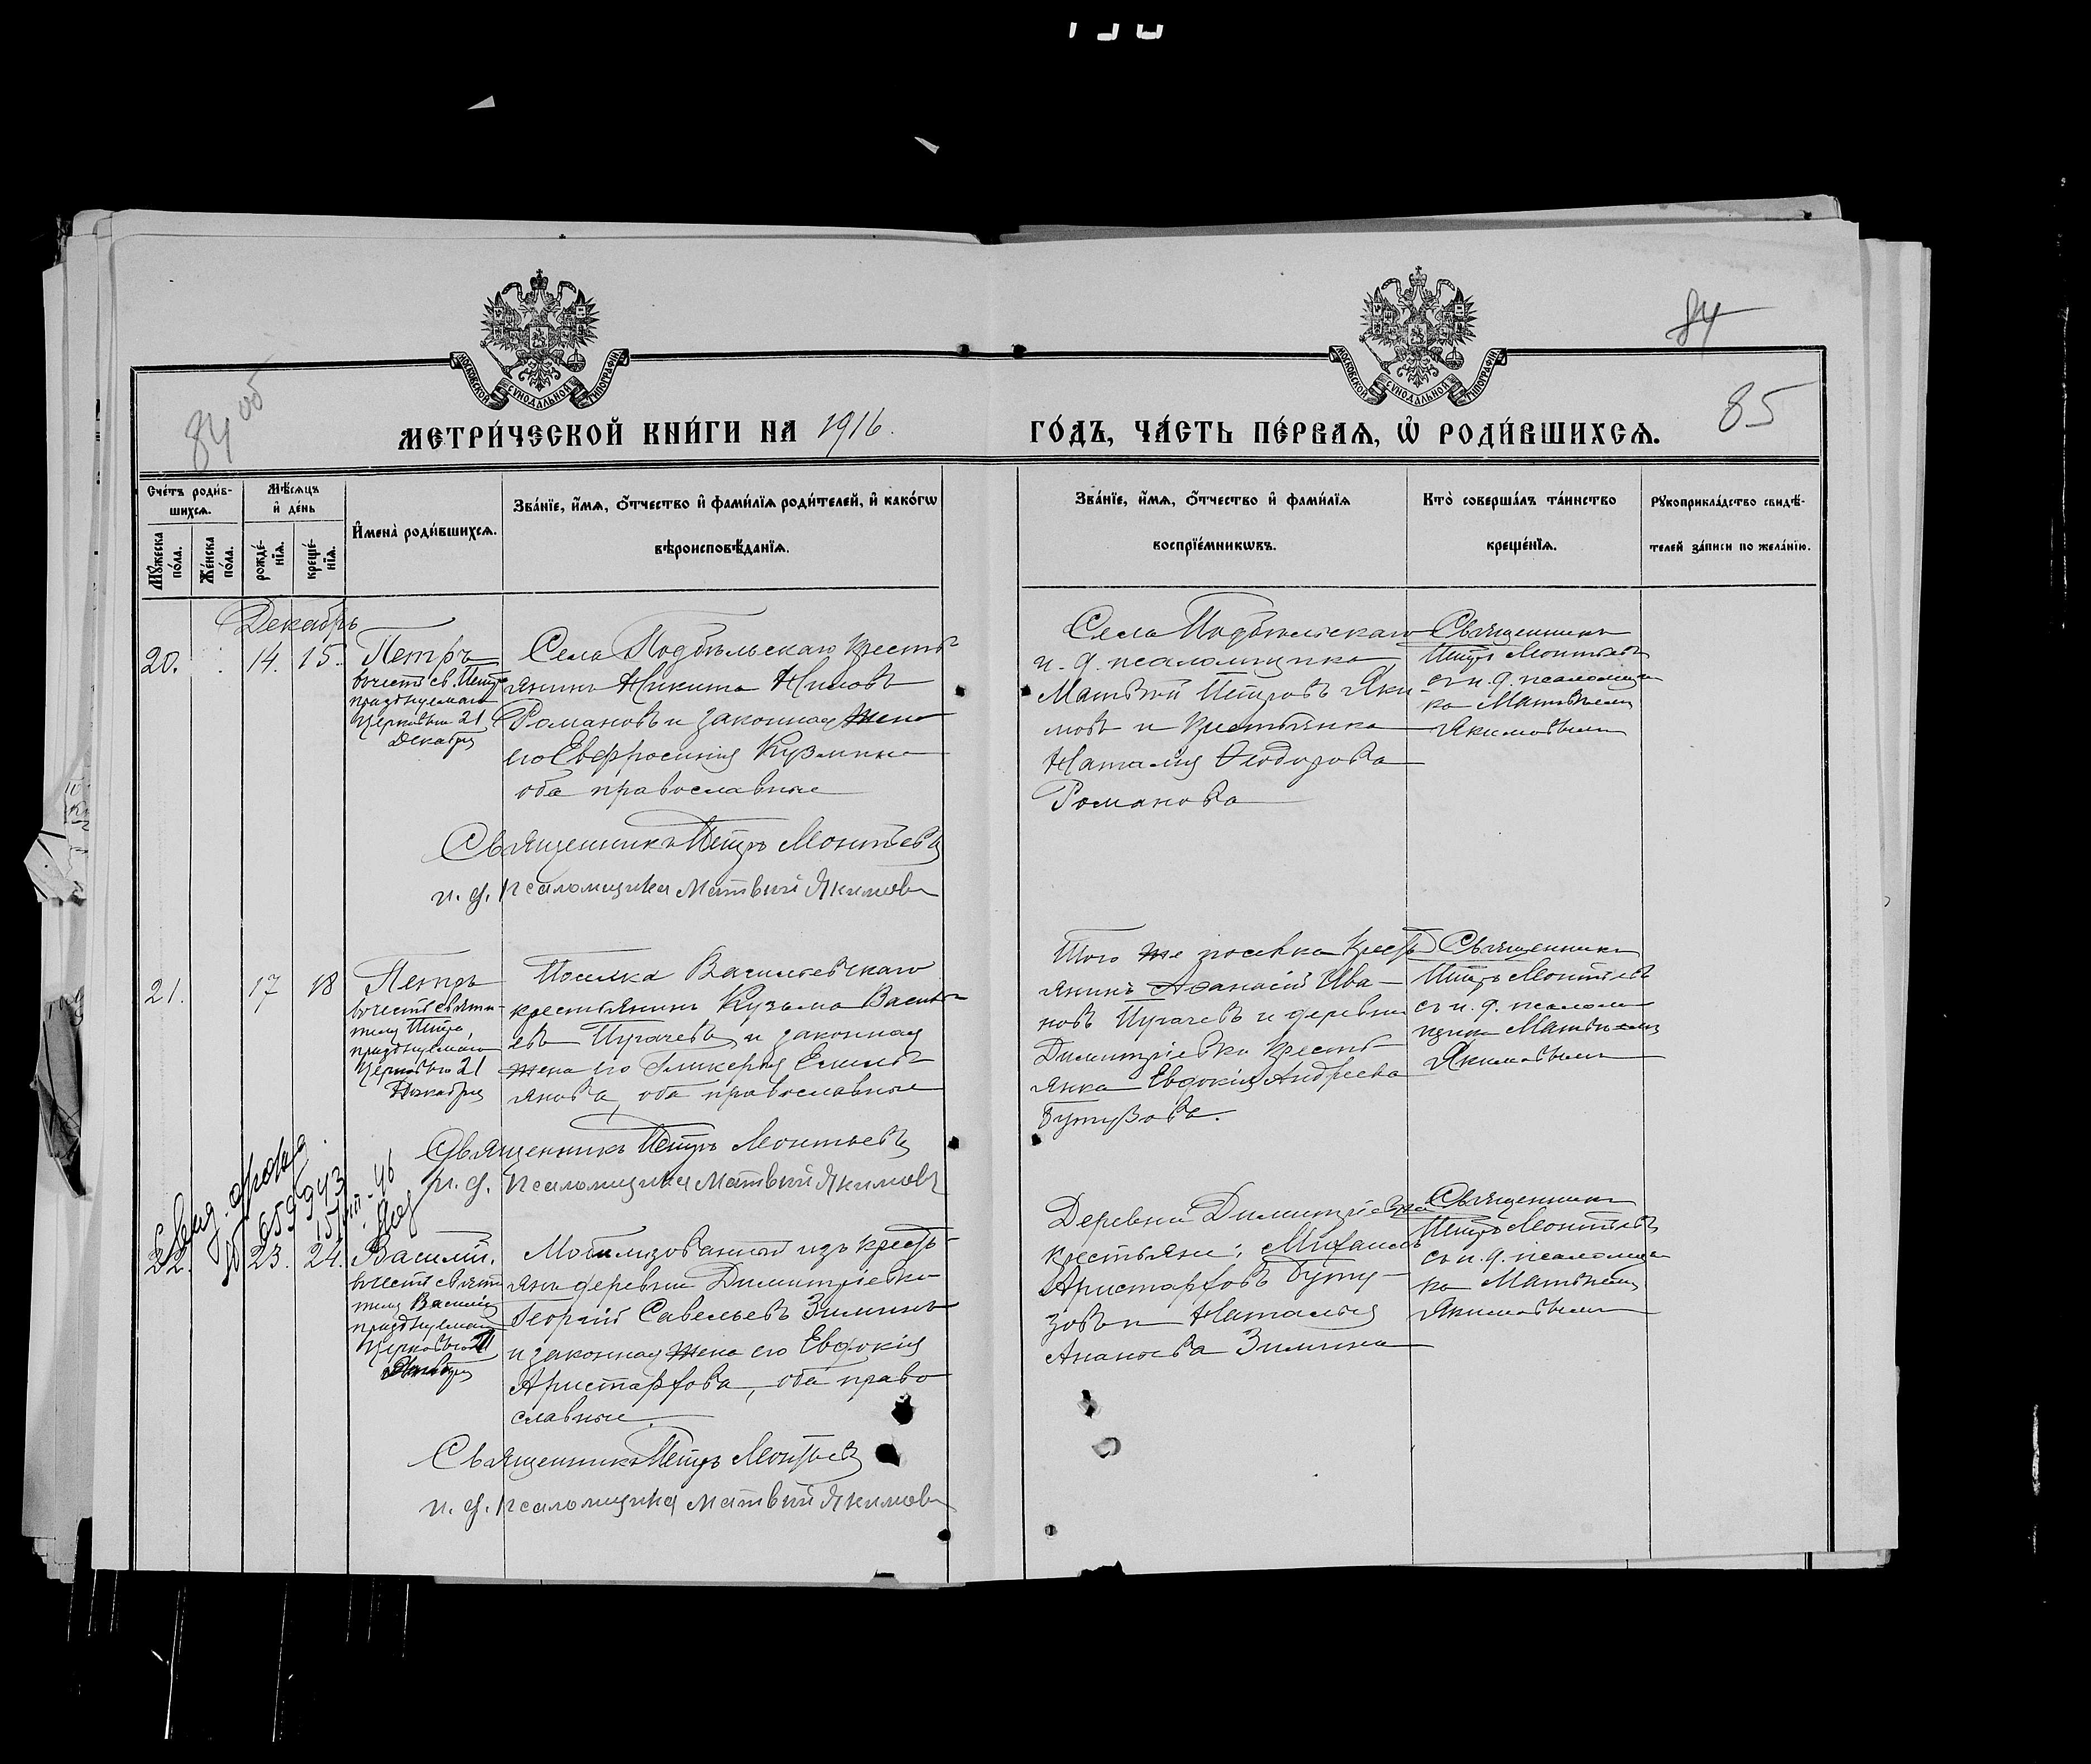 84
84 об
85
МОСКОВСКОЙ СѴНОДАЛЬНОЙ ТИПОГРАФІИ
МОСКОВСКОЙ СѴНОДАЛЬНОЙ ТИПОГРАФІИ
МЕТРИ́ЧЕСКОЙ КНИ́ГИ НА 1916.
ГО́ДЪ, ЧА́СТЬ ПЕ́РВАѦ, Ѽ РОДИ́ВШИХСѦ.
Сче́тъ роди́в-
шихсѧ.
Мꙋ́жеска
по́ла.
Же́нска
по́ла.
Мѣ́сѧцъ
и҆ де́нь
рожде́-
нїѧ.
креще́-
нїѧ.
И҆мена̀ роди́вшихсѧ.
Зва́нїе, и҆́мѧ, ѻ҆́тчество и҆ фами́лїѧ роди́телей, и҆ како́гѡ
вѣроисповѣ́данїѧ.
Зва́нїе, и҆́мѧ, ѻ҆́тчество и҆ фами́лїѧ
воспрїе́мникѡвъ.
Кто̀ соверша́лъ та́инство
креще́нїѧ.
Рꙋкоприкла́дство свидѣ́-
телей за́писи по жела́нїю.
Декабрь
20.
14.
15.
Петръ
въ честь св. Петра
празднуемаго
Церковью 21
Декабря
Села Подбѣльскаго кресть-
янинъ Никита Ниловъ
Романовъ и законная жена
его Евфросинія Кузмина
оба православные
Священникъ Петръ Леонтьевъ
и. д. псаломщика Матвѣй Якимовъ
Села Подбѣльскаго
и. д. псаломщика
Матвѣй Петровъ Яки-
мовъ и крестьянка
Наталія Ѳеодорова
Романова
Священникъ
Петръ Леонтьевъ
съ и. д. псаломщи-
ка Матвѣемъ
Якимовымъ
21.
17
18
Петръ
въ честь святи-
теля Петра,
празднуемаго
Церковью 21
Декабря
Поселка Васильевскаго
крестьянинъ Кузьма Василь-
евъ Пугачевъ и законная
жена его Гликерія Емель-
янова, оба православные
Священникъ Петръ Леонтьевъ
и. д. псаломщика Матвѣй Якимовъ
Того же поселка кресть-
янинъ Аѳанасій Ива-
новъ Пугачевъ и деревни
Димитріевки кресть-
янка Евдокія Андреева
Бутузова.
Священникъ
Петръ Леонтьевъ
съ и. д. псалом-
щика Матвѣемъ
Якимовымъ
22.
23.
24.
Василій.
въ честь святи-
теля Василія
празднуемаго
Церковью
Мобилизованный изъ кресть-
янъ деревни Димитріевки
Георгій Савельевъ Зиминъ
и законная жена его Евдокія
Аристархова, оба право
славные.
Священникъ Петръ Леонтьевъ
и. д. псаломщика Матвѣй Якимовъ
Деревни Димитріевки
крестьяне: Михаилъ
Аристарховъ Буту-
зовъ и Наталья
Ананьева Зимина
Священникъ
Петръ Леонтьевъ
съ и. д. псаломщи-
ка Матвѣемъ
Якимовымъ